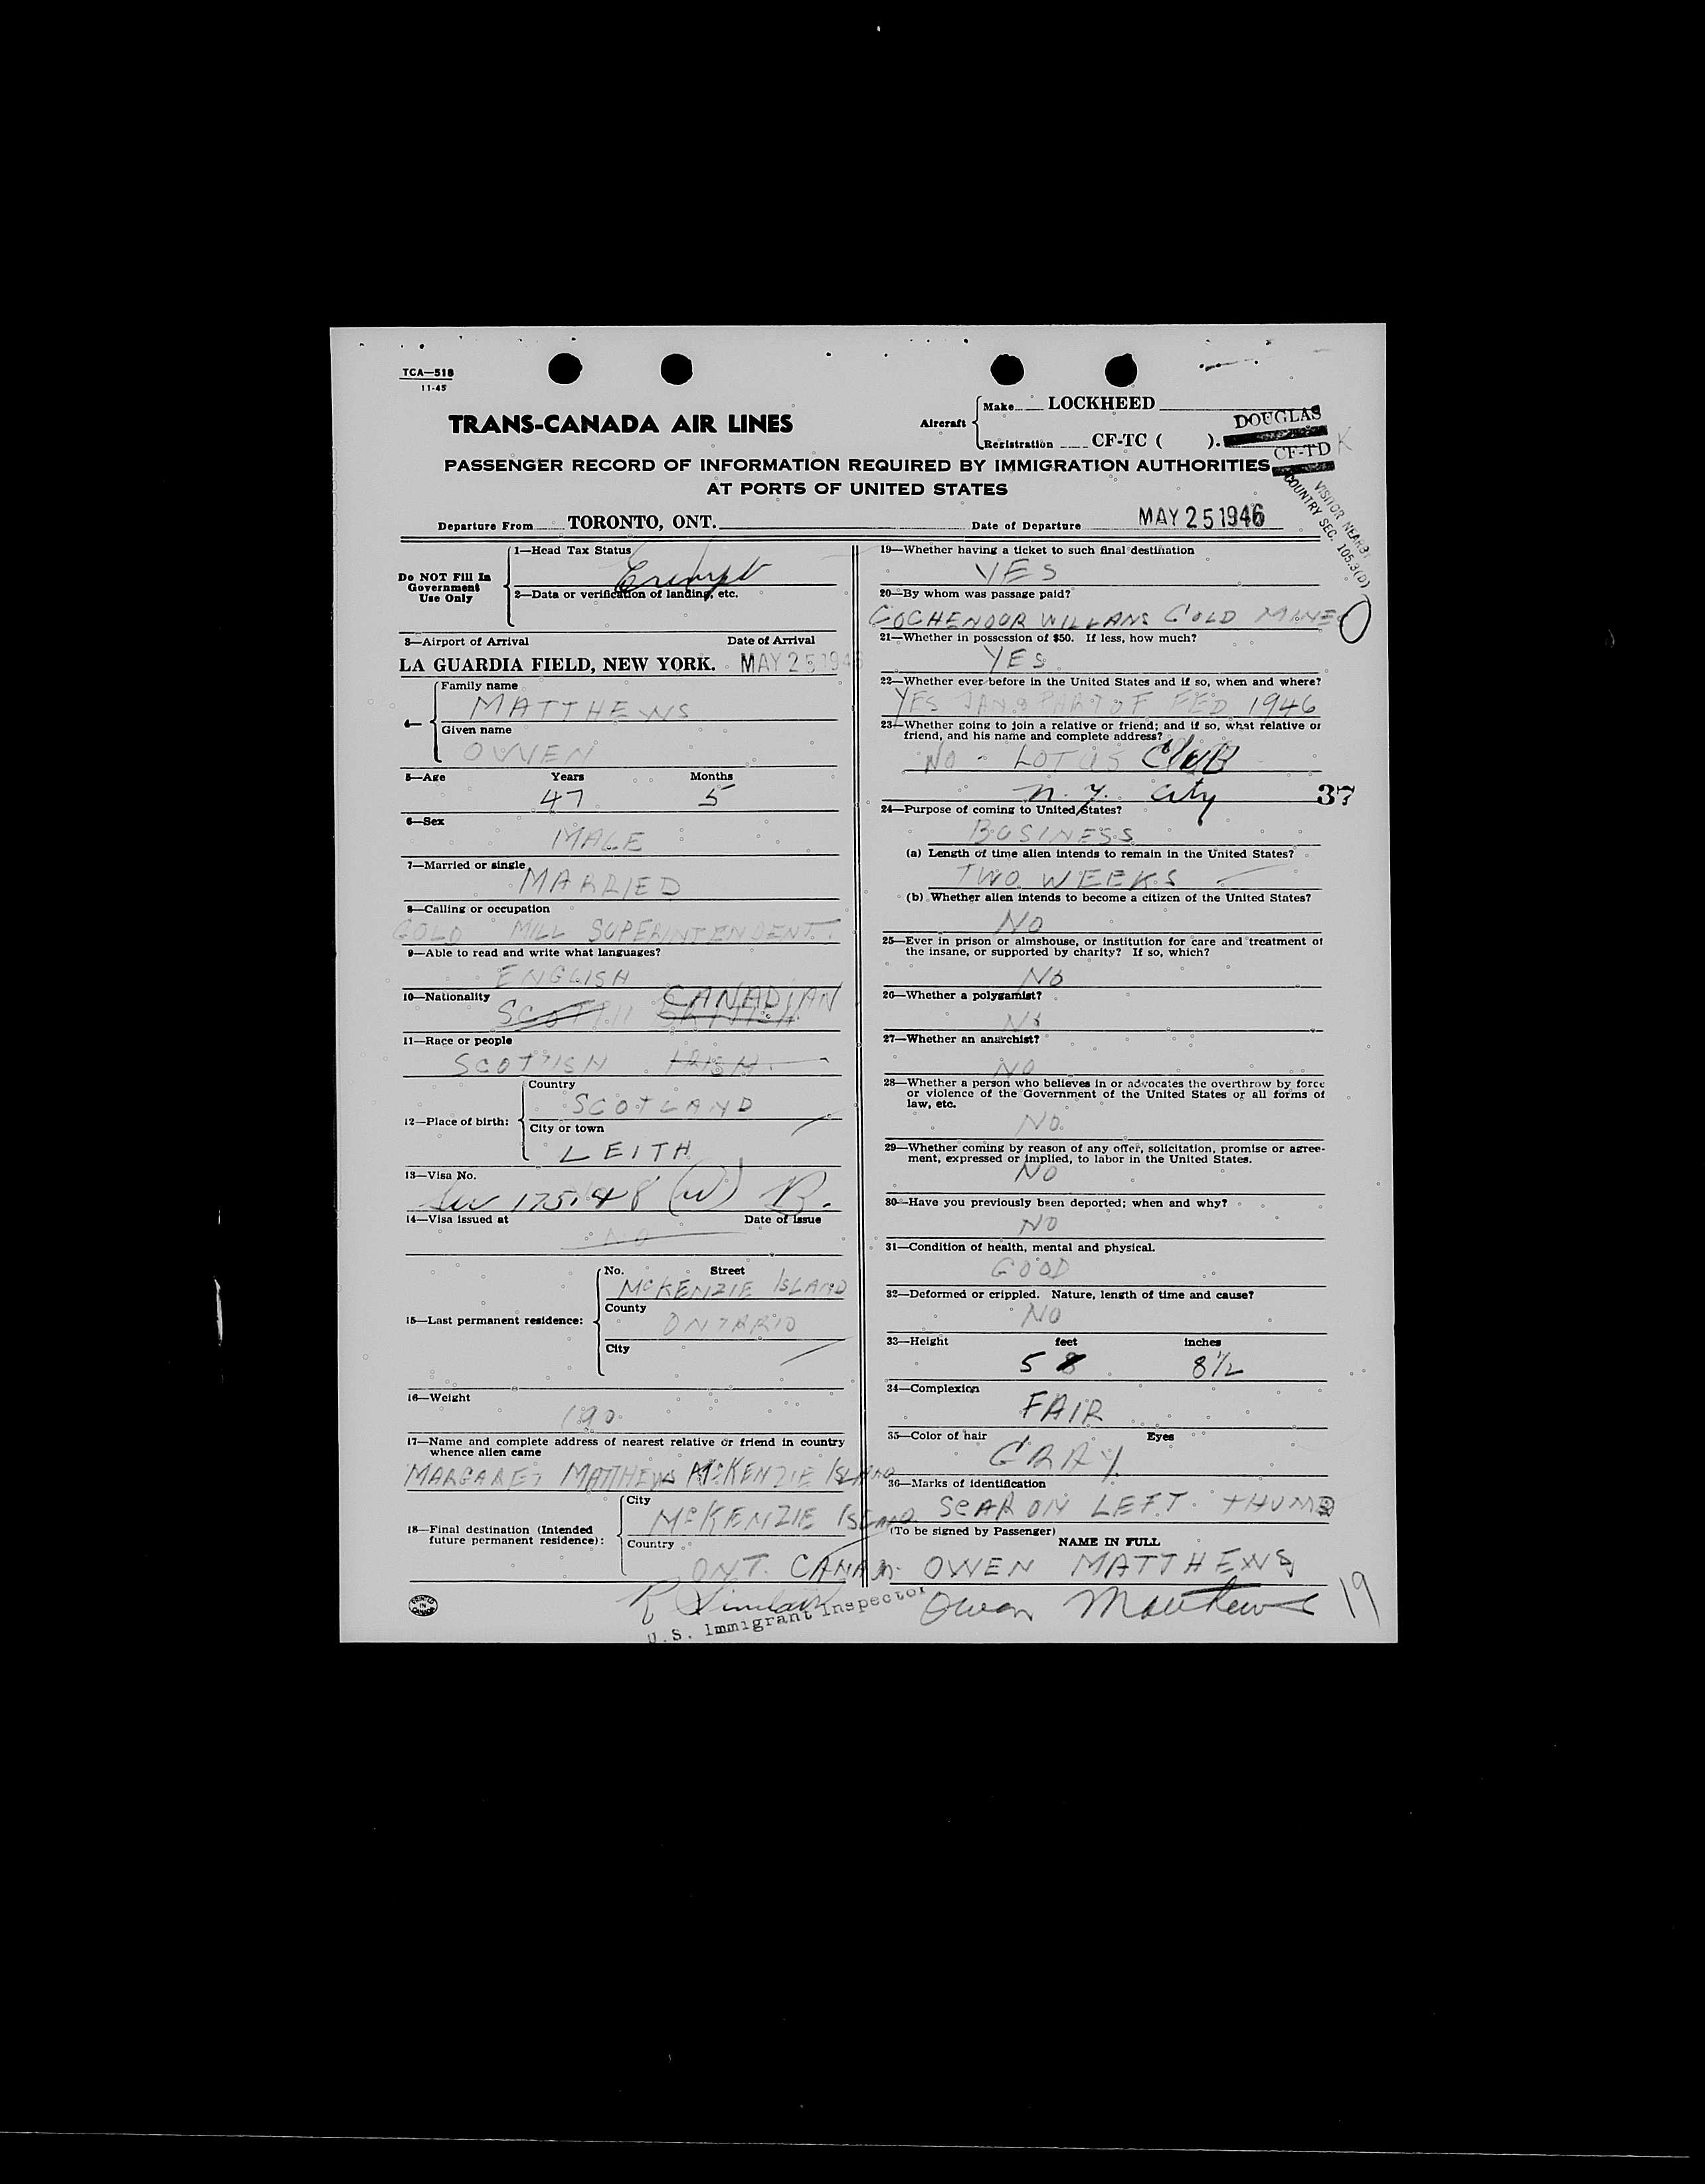 TCA—518
11-45
TRANS-CANADA AIR LINES
Aircraft
Make LOCKHEED
Registration CF-TC ( ).
DOUGLAS
CF-TD K
PASSENGER RECORD OF INFORMATION REQUIRED BY IMMIGRATION AUTHORITIES
AT PORTS OF UNITED STATES
VISITOR NEARBY
COUNTRY SEC. 105.3(D)
Departure From TORONTO, ONT. Date of Departure MAY 25 1946
Do NOT Fill In
Government
Use Only
1—Head Tax Status
Exempt
2—Data or verification of landing, etc.
3—Airport of Arrival Date of Arrival
LA GUARDIA FIELD, NEW YORK. MAY 25 194
4—
Family name
MATTHEWS
Given name
OWEN
5—Age Years Months
47 5
6—Sex
MALE
7—Married or single
MARRIED
8—Calling or occupation
GOLD MILL SUPERINTENDENT
9—Able to read and write what languages?
ENGLISH
10—Nationality
CANADIAN
SCOTTISH BRITISH
11—Race or people
SCOTTISH IRISH
12—Place of birth:
Country
SCOTLAND
City or town
LEITH
13—Visa No.
175148 (W) B.
14—Visa issued at Date of issue
NO
15—Last permanent residence:
No. Street
McKENZIE ISLAND
County
ONTARIO
City
16—Weight
190
17—Name and complete address of nearest relative or friend in country
whence alien came
MARGARET MATTHEWS McKENZIE ISLAND
18—Final destination (Intended
future permanent residence):
City
McKENZIE ISLAND
Country
ONT. CANADA
PRINTED IN CANADA
R Sinclair
U.S. Immigrant Inspector
19—Whether having a ticket to such final destination
YES
20—By whom was passage paid?
COCHENOUR WILLANS GOLD MINES
21—Whether in possession of $50. If less, how much?
YES
22—Whether ever before in the United States and if so, when and where?
YES JAN & PART OF FEB 1946
23—Whether going to join a relative or friend; and if so, what relative or
friend, and his name and complete address?
NO - LOTUS CluB
n. y. City 37
24—Purpose of coming to United States?
BUSINESS
(a) Length of time alien intends to remain in the United States?
TWO WEEKS
(b) Whether alien intends to become a citizen of the United States?
NO
25—Ever in prison or almshouse, or institution for care and treatment of
the insane, or supported by charity? If so, which?
NO
26—Whether a polygamist?
NO
27—Whether an anarchist?
NO
28—Whether a person who believes in or advocates the overthrow by force
or violence of the Government of the United States or all forms of
law, etc.
NO
29—Whether coming by reason of any offer, solicitation, promise or agree-
ment, expressed or implied, to labor in the United States.
NO
30—Have you previously been deported; when and why?
NO
31—Condition of health, mental and physical.
GOOD
32—Deformed or crippled. Nature, length of time and cause?
NO
33—Height feet inches
5 8 8 1/2
34—Complexion
FAIR
35—Color of hair Eyes
GRAY
36—Marks of identification
SCAR ON LEFT THUMB
(To be signed by Passenger)
NAME IN FULL
OWEN MATTHEWS
Owen Matthews 19